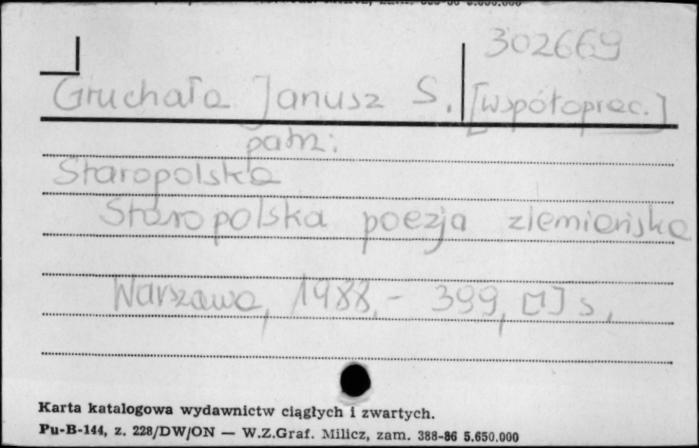 302669
Gruchała Janusz S. [współoprac.]
patrz:
Staropolska
Staropolska poezja ziemiańska
Warszawa, 1988.- 399, [1] s.
Karta katalogowa wydawnictw ciągłych i zwartych.
Pu-B-144, z. 228/DW/ON — W.Z.Graf. Milicz, zam. 388-86 5.650.000